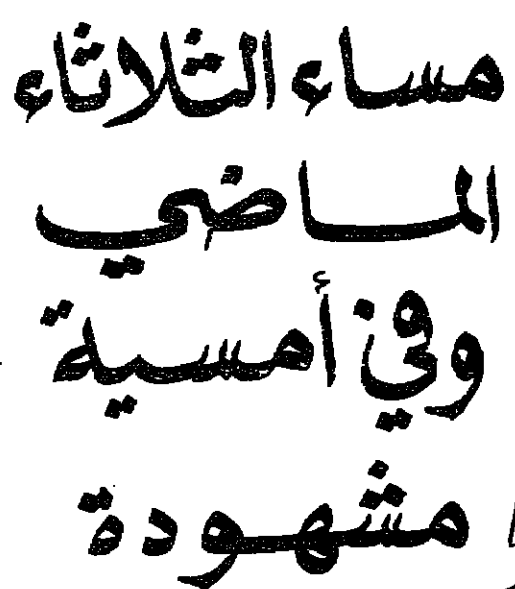 مساء الثلاثاء
الماضي
وفي أمسية
مشهودة